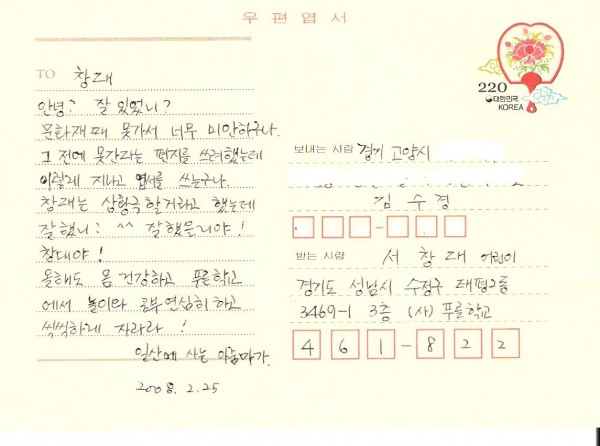 우편엽서
TO 창대
안녕? 잘 있었니?
문화재때 못가서 너무 미안하구나.
그 전에 못간다는 편지를 쓰려했는데
이렇게 지나고 엽서를 쓰는구나.
창대는 상황극 할거라고 했는데
잘했니? ^^ 잘했을거야!
창대야!
올해도 몸 건강하고 푸른학교
에서 놀이와 공부 연심히 하고
씩씩하게 자라라!
일산에 사는 아줌마가.
2008. 2. 25
220
대한민국
KOREA
보내는 사람 경기 고양시
김수경
받는 사람 서창대 어린이
경기도 성남시 수정구 태평2동
3469-1 3층 (사) 푸른학교
461-822